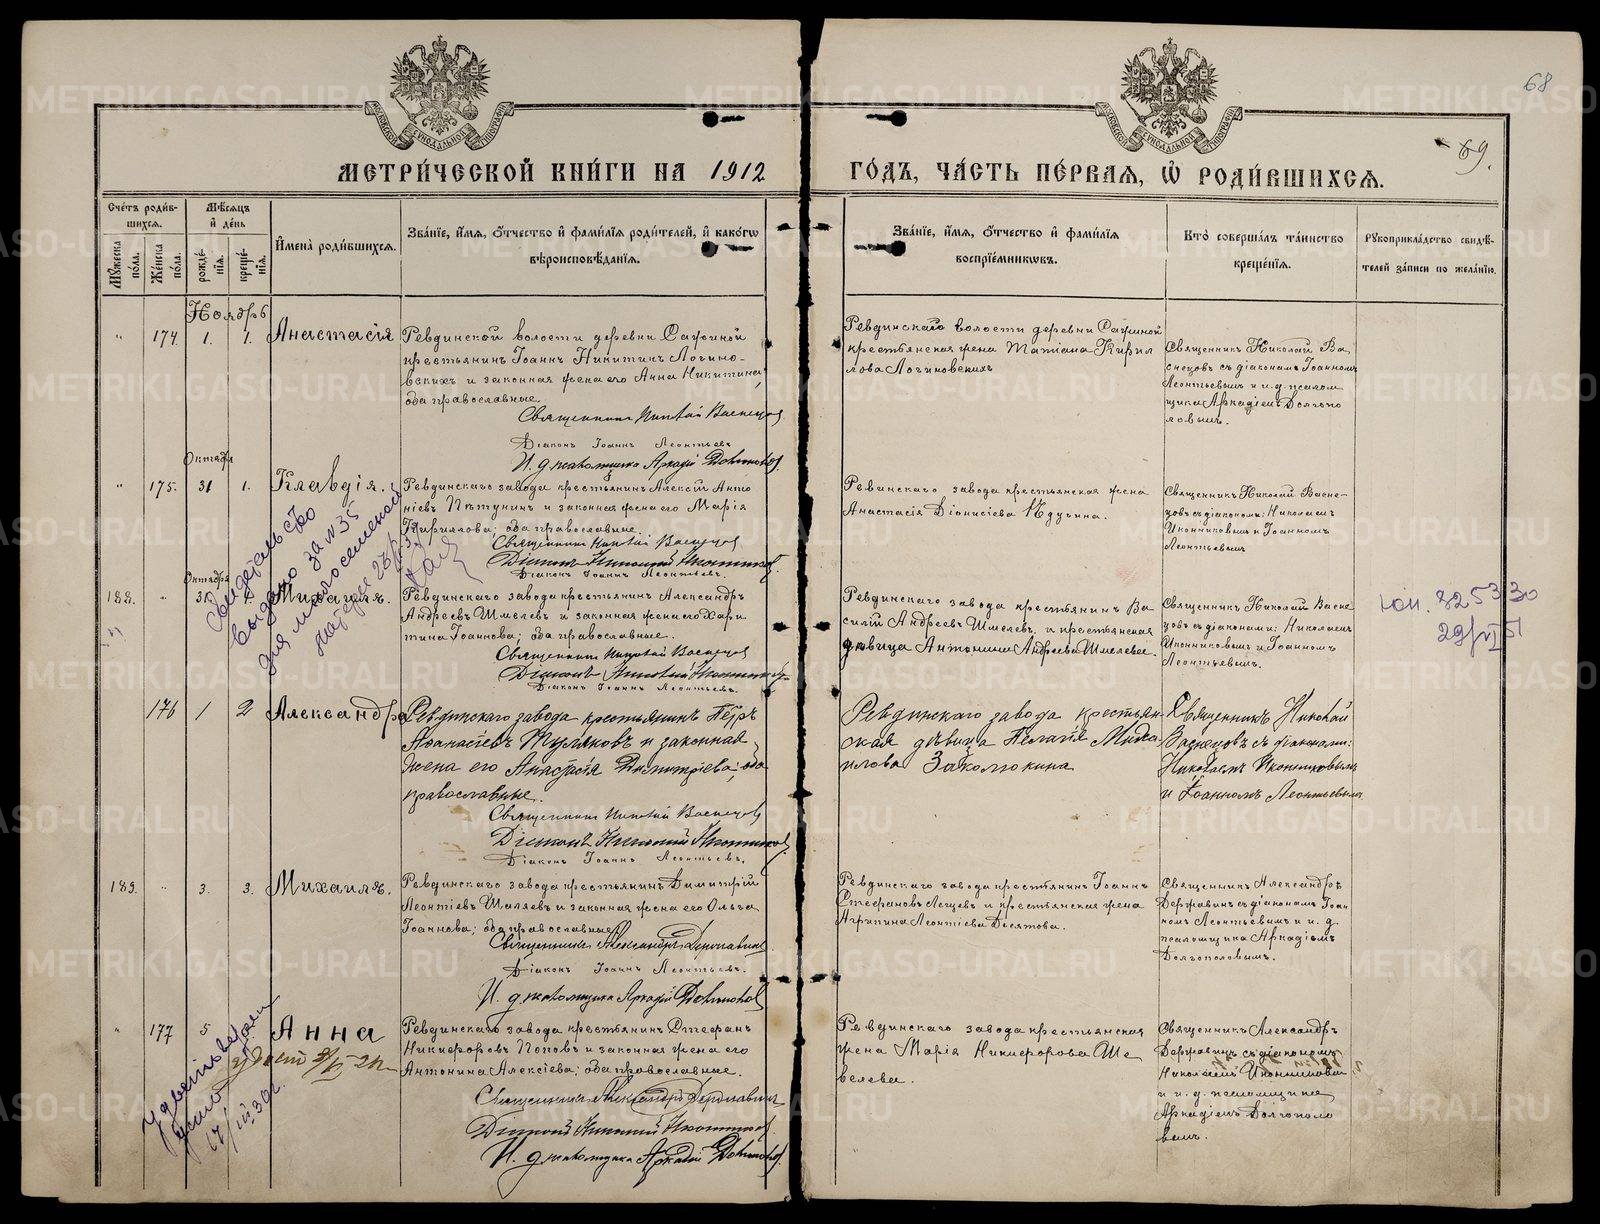 68
69.
МЕТРИЧЕСКОЙ КНИГИ НА 1912
ГОДЪ, ЧАСТЬ ПЕРВАЯ, Ѡ РОДИВШИХСЯ.
Счетъ родившихся.
Мужеска пола.
Женска пола.
Мѣсяцъ и день
рожденія.
крещенія.
Имена родившихся.
Званіе, имя, отчество и фамилія родителей, и какогѡ
вѣроисповѣданія.
Званіе, имя, отчество и фамилія
воспріемникωвъ.
Кто совершалъ таинство
крещенія.
Рукоприкладство свидѣ-
телей записи по желанію.
Ноябрь
" 174. 1. 1. Анастасія
Ревдинской волости деревни Сафиной
крестьянинъ Іоаннъ Никитинъ Логино-
вскихъ и законная жена его Анна Никитина,
оба православные.
Священникъ Николай Васнецов
Діаконъ Іоаннъ Леонтьевъ
И. д. псаломщика Аркадій Долгополов
Ревдинскаго волости деревни Сафиной
крестьянская жена Татіана Кирил
лова Логиновскихъ
Священникъ Николай Ва
снецовъ съ діакономъ Іоанномъ
Леонтьевымъ и и. д. псалом
щика Аркадіемъ Долгопо
ловымъ.
Октября
" 175. 31 1. Клавдія.
Ревдинскаго завода крестьянинъ Алексій Анто
ніевъ Пѣтунинъ и законная жена его Марія
Кириллова; оба православные.
Священникъ Николай Васнецов
Діаконъ Николай Иконников
Діаконъ Іоаннъ Леонтьевъ.
Ревдинскаго завода крестьянская жена
Анастасія Діонисіева
Священникъ Николай Васне-
цовъ съ діаконами: Николаемъ
Иконниковымъ и Іоанномъ
Леонтьевымъ
Свидетельство
выдано за № 35
для
Октября
188. " 31. 1. Михаилъ.
Ревдинскаго завода крестьянинъ Александръ
Андреевъ Шмелевъ и законная жена его Хари
тина Іоаннова; оба православные.
Священникъ Николай Васнецов
Діаконъ Николай Иконников
Діаконъ Іоаннъ Леонтьевъ.
Ревдинскаго завода крестьянинъ Ва
силій Андреевъ Шмелевъ и крестьянская
дѣвица Антонина Андреева Шмелева.
Священникъ Николай Васне
цовъ съ діаконами: Николаемъ
Иконниковымъ и Іоанномъ
Леонтьевымъ.
176 1 2 Александра
Ревдинскаго завода крестьянинъ Петръ
Афанасіевъ Туляковъ и законная
жена его Анастасія Димитріева; оба
православные.
Священникъ Николай Васнецов
Діаконъ Николай Иконников
Діаконъ Іоаннъ Леонтьевъ.
Ревдинскаго завода крестьян-
ская дѣвица Пелагія Миха
илова Заколюкина
Священникъ Николай
Васнецовъ съ діаконами:
Николаемъ Иконниковымъ
и Іоанномъ Леонтьевымъ
189. " 3. 3. Михаилъ.
Ревдинскаго завода крестьянинъ Димитрій
Леонтіевъ Шаляевъ и законная жена его Ольга
Іоаннова; оба православные
Священникъ Александръ Державинъ
Діаконъ Іоаннъ Леонтьевъ.
И. д. псаломщика Аркадій Долгополов
Ревдинскаго завода крестьянинъ Іоаннъ
Стефановъ Лещевъ и крестьянская жена
Агрипина Леонтіева Десятова.
Священникъ Александръ
Державинъ съ діакономъ Іоан
номъ Леонтьевымъ и и. д.
псаломщика Аркадіемъ
Долгополовымъ.
" 177 5 Анна
Ревдинскаго завода крестьянинъ Стефанъ
Никифоровъ Поповъ и законная жена его
Антонина Алексіева; оба православные.
Священникъ Александръ Державинъ
Діаконъ Николай Иконников
И. д. псаломщика Аркадій Долгополов
Ревдинскаго завода крестьянская
жена Марія Никифорова Ше
велева.
Священникъ Александръ
Державинъ съ діакономъ
Николаемъ Иконниковы
и и. д. псаломщика
Аркадіемъ Долгополо
вымъ.
METRIKI.GASO-URAL.RU